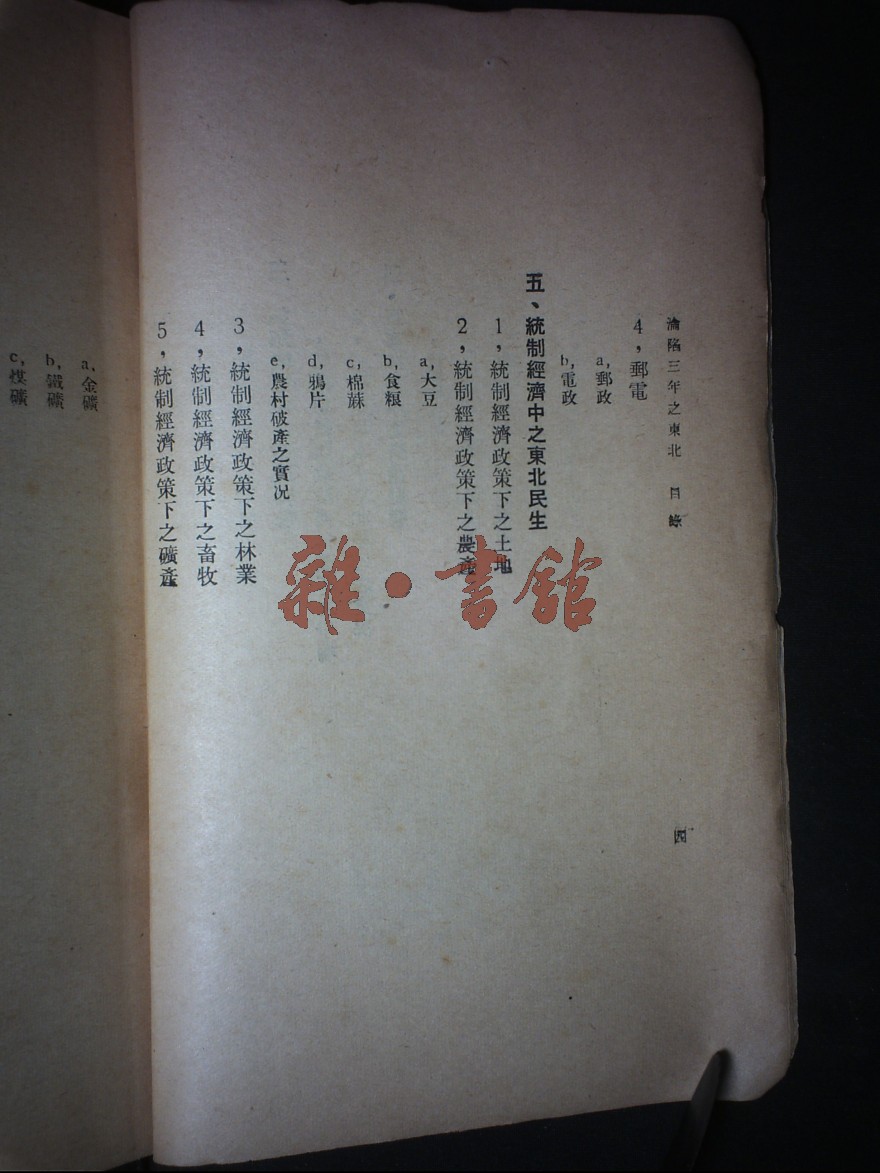 淪陷三年之東北　目錄
四
4，郵電
a,郵政
b,電政
五、統制經濟中之東北民生
1，統制經濟政策下之土地
2，統制經濟政策下之農產
a,大豆
b,食糧
c,棉蔴
d,鴉片
e,農村破產之實况
3，統制經濟政策下之林業
4，統制經濟政策下之畜牧
5，統制經濟政策下之礦產
a,金礦
b,鐵礦
c,煤礦
雜·書館